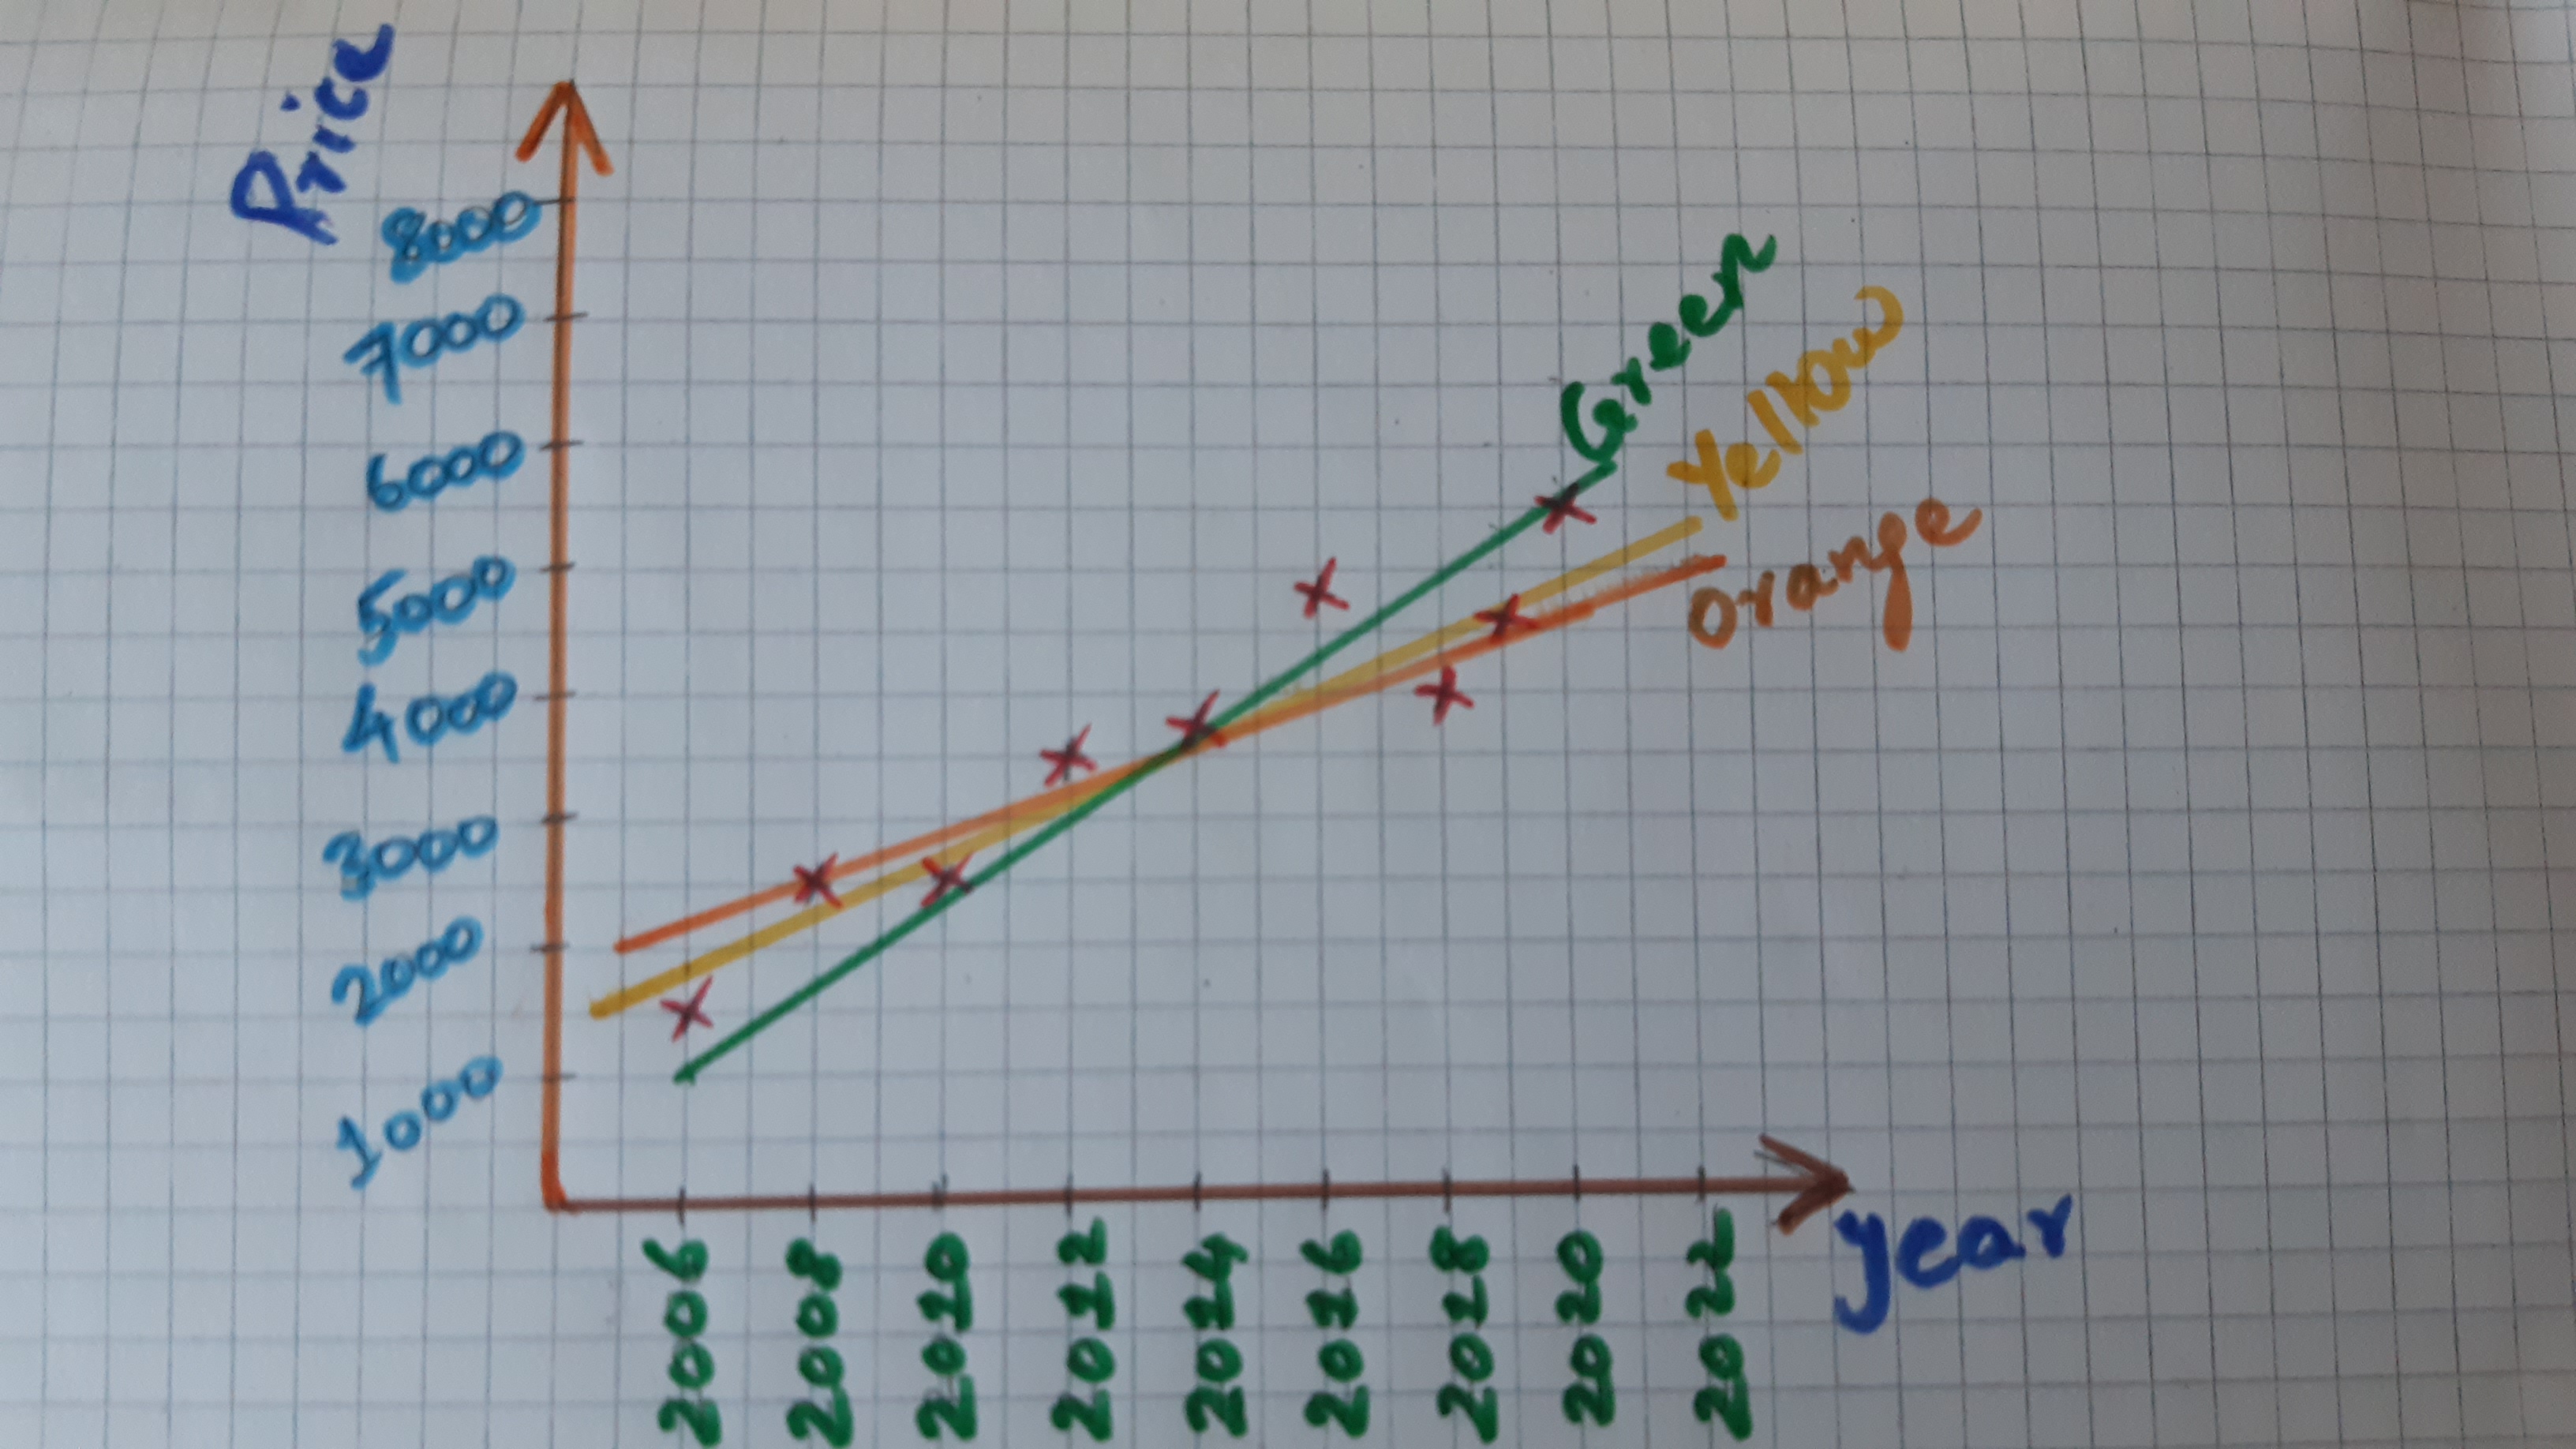 Price
8000
7000
6000
5000
4000
3000
2000
1000
Green
Yellow
Orange
2006
2008
2010
2012
2014
2016
2018
2020
2022
year